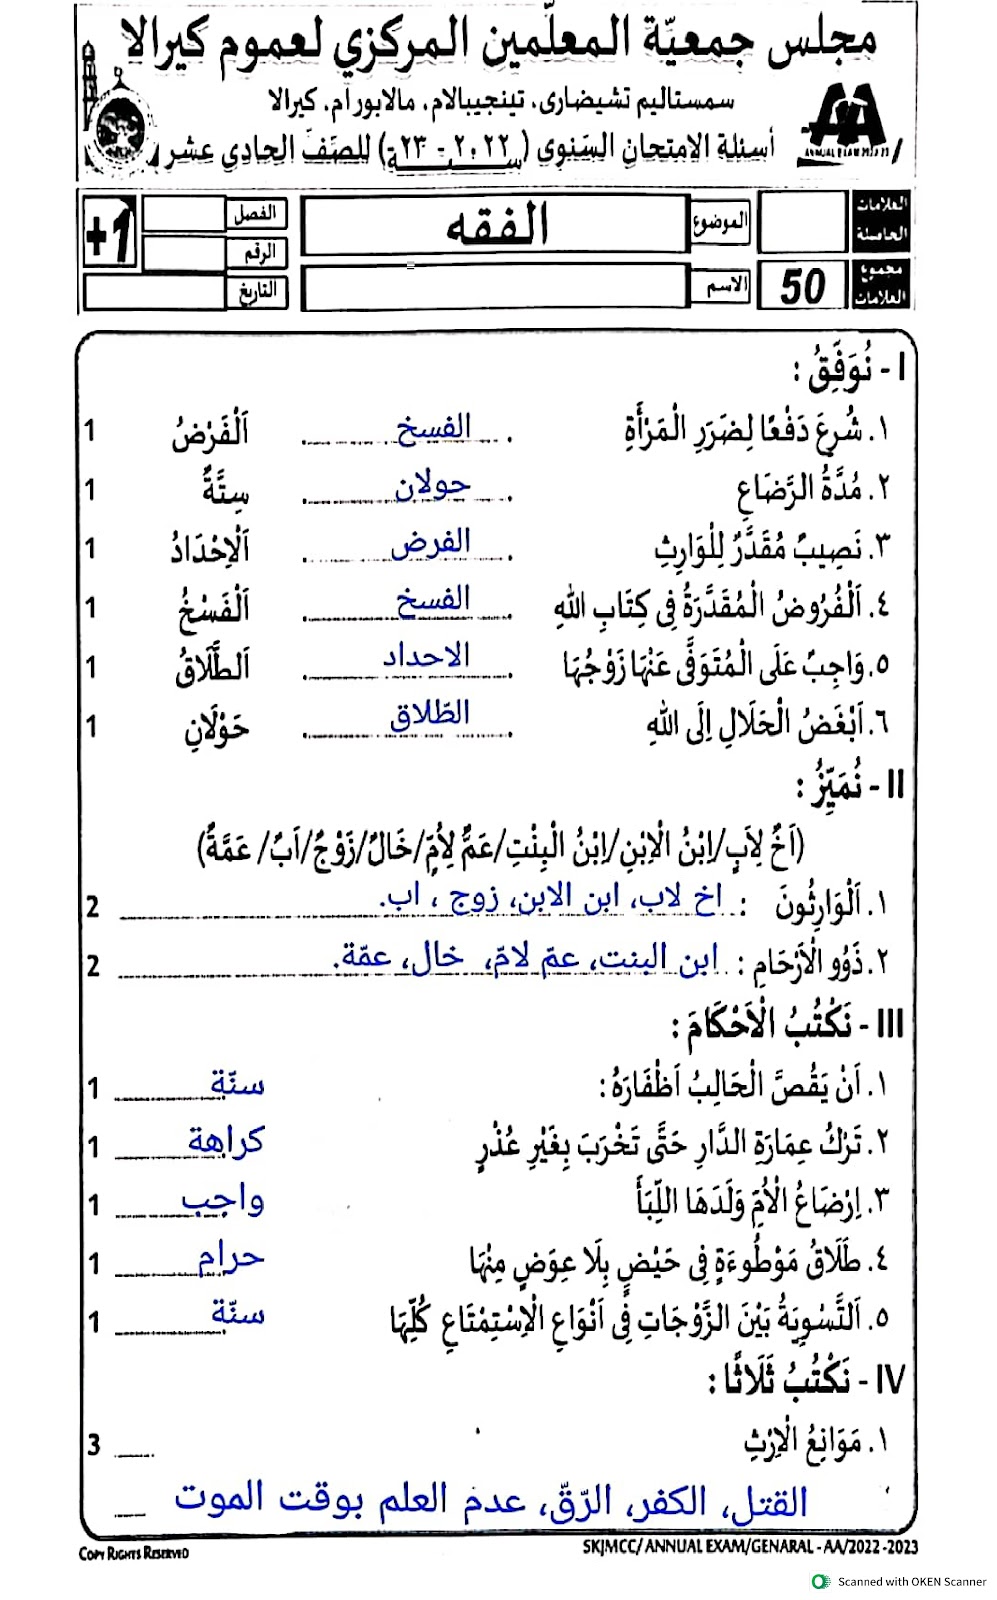 مجلس جمعيّة المعلّمين المركزي لعموم كيرالا
سمستاليم تشيضارى، تينجيبالام، مالابورام، كيرالا
أسئلة الامتحان السّنوى (٢٠٢٢-٢٣ سنة) للصّفّ الحادي عشر
ANNUAL EXAM 2022-23
العلامات الحاصلة
الموضوع الفقه
الفصل +1
الرقم
مجموع العلامات 50
الاسم
التاريخ
I - نُوَفِّقُ :
١. شُرِعَ دَفْعًا لِضَرَرِ الْمَرْأَةِ الفسخ اَلْفَرْضُ 1
٢. مُدَّةُ الرَّضَاعِ حولان سِتَّةٌ 1
٣. نَصِيبٌ مُقَدَّرٌ لِلْوَارِثِ الفرض اَلْاِحْدَادُ 1
٤. اَلْفُرُوضُ الْمُقَدَّرَةُ فِى كِتَابِ اللهِ الفسخ اَلْفَسْخُ 1
٥. وَاجِبٌ عَلَى الْمُتَوَفَّى عَنْهَا زَوْجُهَا الاحداد اَلطَّلَاقُ 1
٦. اَبْغَضُ الْحَلَالِ اِلَى اللهِ الطّلاق حَوْلَانِ 1
II - نُمَيِّزُ :
(اَخٌ لِاَبٍ/اِبْنُ الْاِبْنِ/اِبْنُ الْبِنْتِ/عَمٌّ لِاُمٍّ/خَالٌ/زَوْجٌ/اَبٌ/ عَمَّةٌ)
١. اَلْوَارِثُونَ : اخ لاب، ابن الابن، زوج ، اب. 2
٢. ذَوُو الْاَرْحَامِ : ابن البنت، عمّ لامّ، خال، عمّة. 2
III - نَكْتُبُ الْاَحْكَامَ :
١. اَنْ يَقُصَّ الْحَالِبُ اَظْفَارَهُ : سنّة 1
٢. تَرْكُ عِمَارَةِ الدَّارِ حَتَّى تَخْرَبَ بِغَيْرِ عُذْرٍ كراهة 1
٣. اِرْضَاعُ الْاُمِّ وَلَدَهَا اللِّبَأَ واجب 1
٤. طَلَاقُ مَوْطُوءَةٍ فِى حَيْضٍ بِلَا عِوَضٍ مِنْهَا حرام 1
٥. اَلتَّسْوِيَةُ بَيْنَ الزَّوْجَاتِ فِى اَنْوَاعِ الْاِسْتِمْتَاعِ كُلِّهَا سنّة 1
IV - نَكْتُبُ ثَلَاثًا :
١. مَوَانِعُ الْاِرْثِ 3
القتل، الكفر، الرّقّ، عدم العلم بوقت الموت
COPY RIGHTS RESERVED
SKJMCC/ ANNUAL EXAM/GENARAL - AA/2022-2023
Scanned with OKEN Scanner